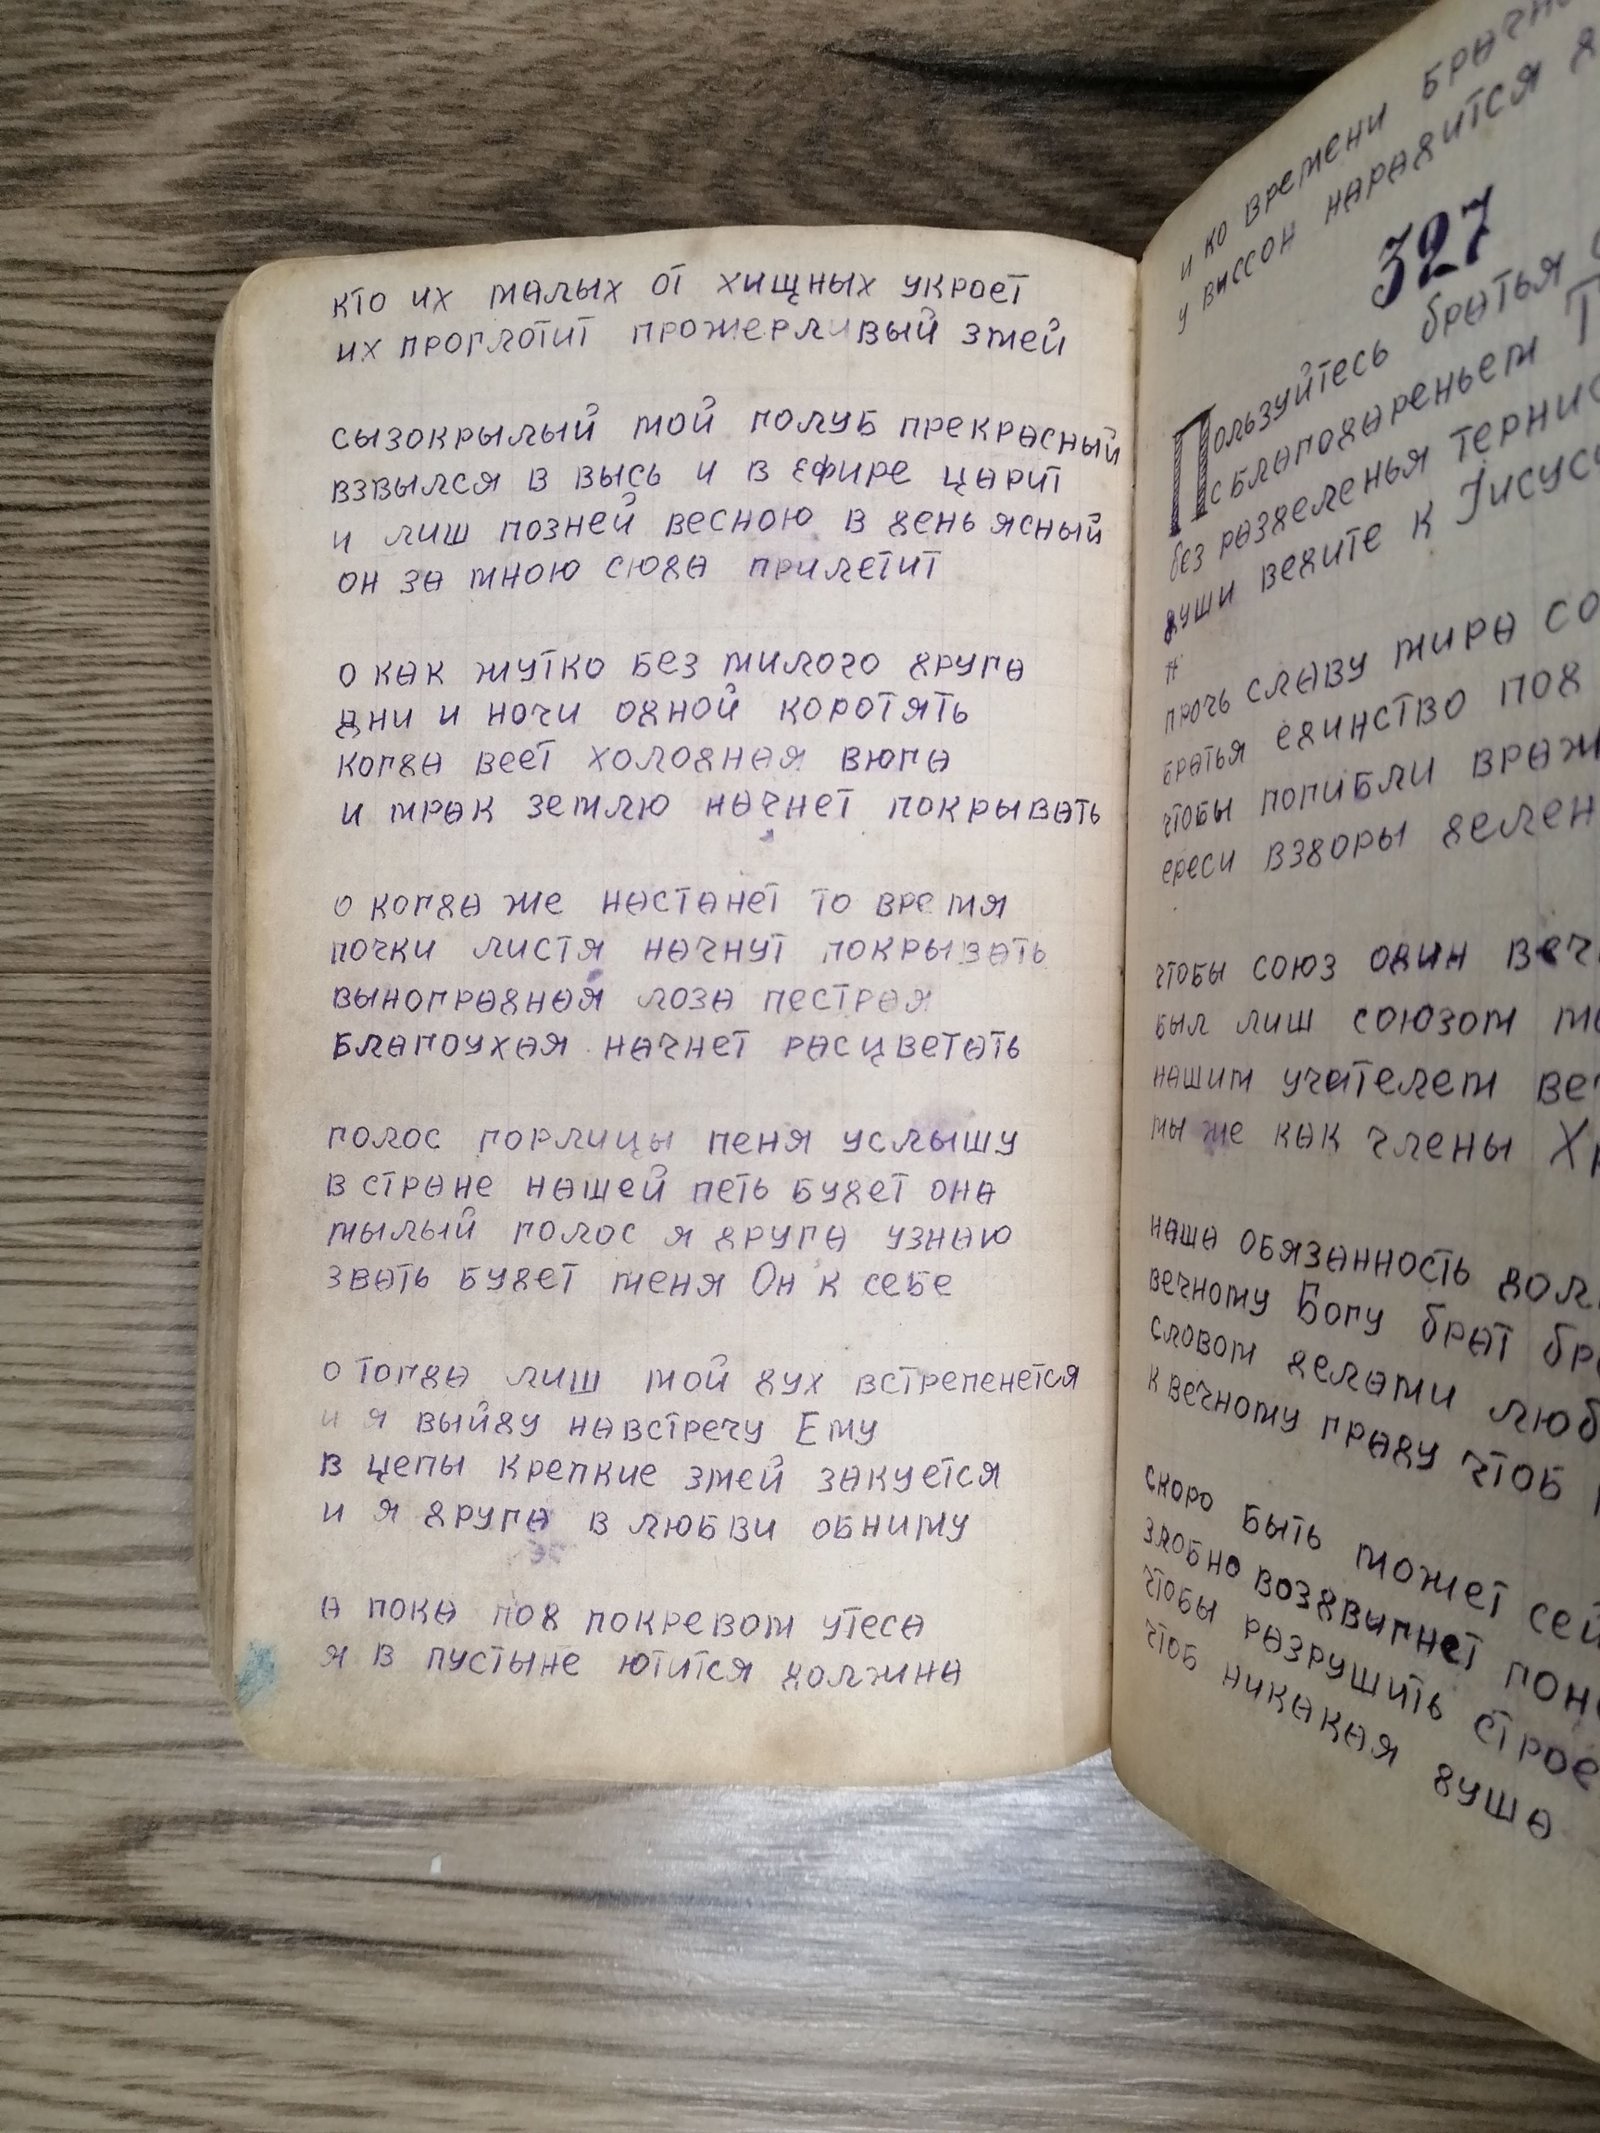 кто их малых от хищных укроет
их проглотит прожерливый змей
сызокрылый мой голуб прекрасный
взвылся в высь и в ефире царит
и лиш позней весною в день ясный
он за мною сюда прилетит
о как жутко без милого друга
дни и ночи одной коротять
когда веет холодная вюга
и мрак землю начнет покрывать
о когда же настанет то время
почки листя начнут покрывать
выноградная лоза пестрая
благоухая начнет расцветать
голос горлицы пеня услышу
в стране нашей петь будет она
мылый голос я друга узнаю
звать будет меня Он к себе
о тогда лиш мой дух встрепенется
и я выйду навстречу Ему
в цепы крепкие змей закуется
и я друга в любви обниму
а пока под покревом утеса
я в пустыне ютится должна
и ко времени брачно
у виссон нарядится
327
Пользуйтесь братья
с благодареньем
без разделенья тернис
души ведите к Іисусу
прочь славу мира со
братья единство под
чтобы погибли враж
ереси вздоры делен
чтобы союз один веч
был лиш союзом
нашим учителем ве
мы же как члены Хр
наша обязанность дол
вечному Богу брат бра
словом делами люб
к вечному граду чтоб
скоро быть может сей
злобно воздвигнет гон
чтобы разрушить строе
чтоб никакая душа